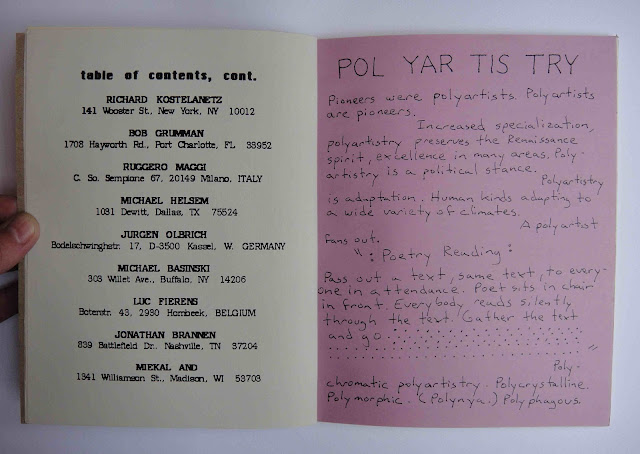 table of contents, cont.
RICHARD KOSTELANETZ
141 Wooster St., New York, NY 10012
BOB GRUMMAN
1708 Hayworth Rd., Port Charlotte, FL 33952
RUGGERO MAGGI
C. So. Sempione 67, 20149 Milano, ITALY
MICHAEL HELSEM
1031 Dewitt, Dallas, TX 75524
JURGEN OLBRICH
Bodelschwinghstr. 17, D-3500 Kassel, W. GERMANY
MICHAEL BASINSKI
303 Willet Ave., Buffalo, NY 14206
LUC FIERENS
Boterstr. 43, 2930 Hombeek, BELGIUM
JONATHAN BRANNEN
839 Battlefield Dr., Nashville, TN 37204
MIEKAL AND
1341 Williamson St., Madison, WI 53703
POL YAR TIS TRY
Pioneers were polyartists. Polyartists
are pioneers.
Increased specialization,
polyartistry preserves the Rennissance
spirit, excellence in many areas. Poly-
artistry is a political stance.
Polyartistry
is adaptation. Human kinds adapting to
a wide variety of climates.
A polyartist
fans out.
": Poetry Reading:
Pass out a text, same text, to every-
one in attendance. Poet sits in chair
in front. Everybody reads silently
through the text. Gather the text
and go
"
Poly-
chromatic polyartistry. Polycrystalline.
Polymorphic. (Polynya.) Polyphagous.